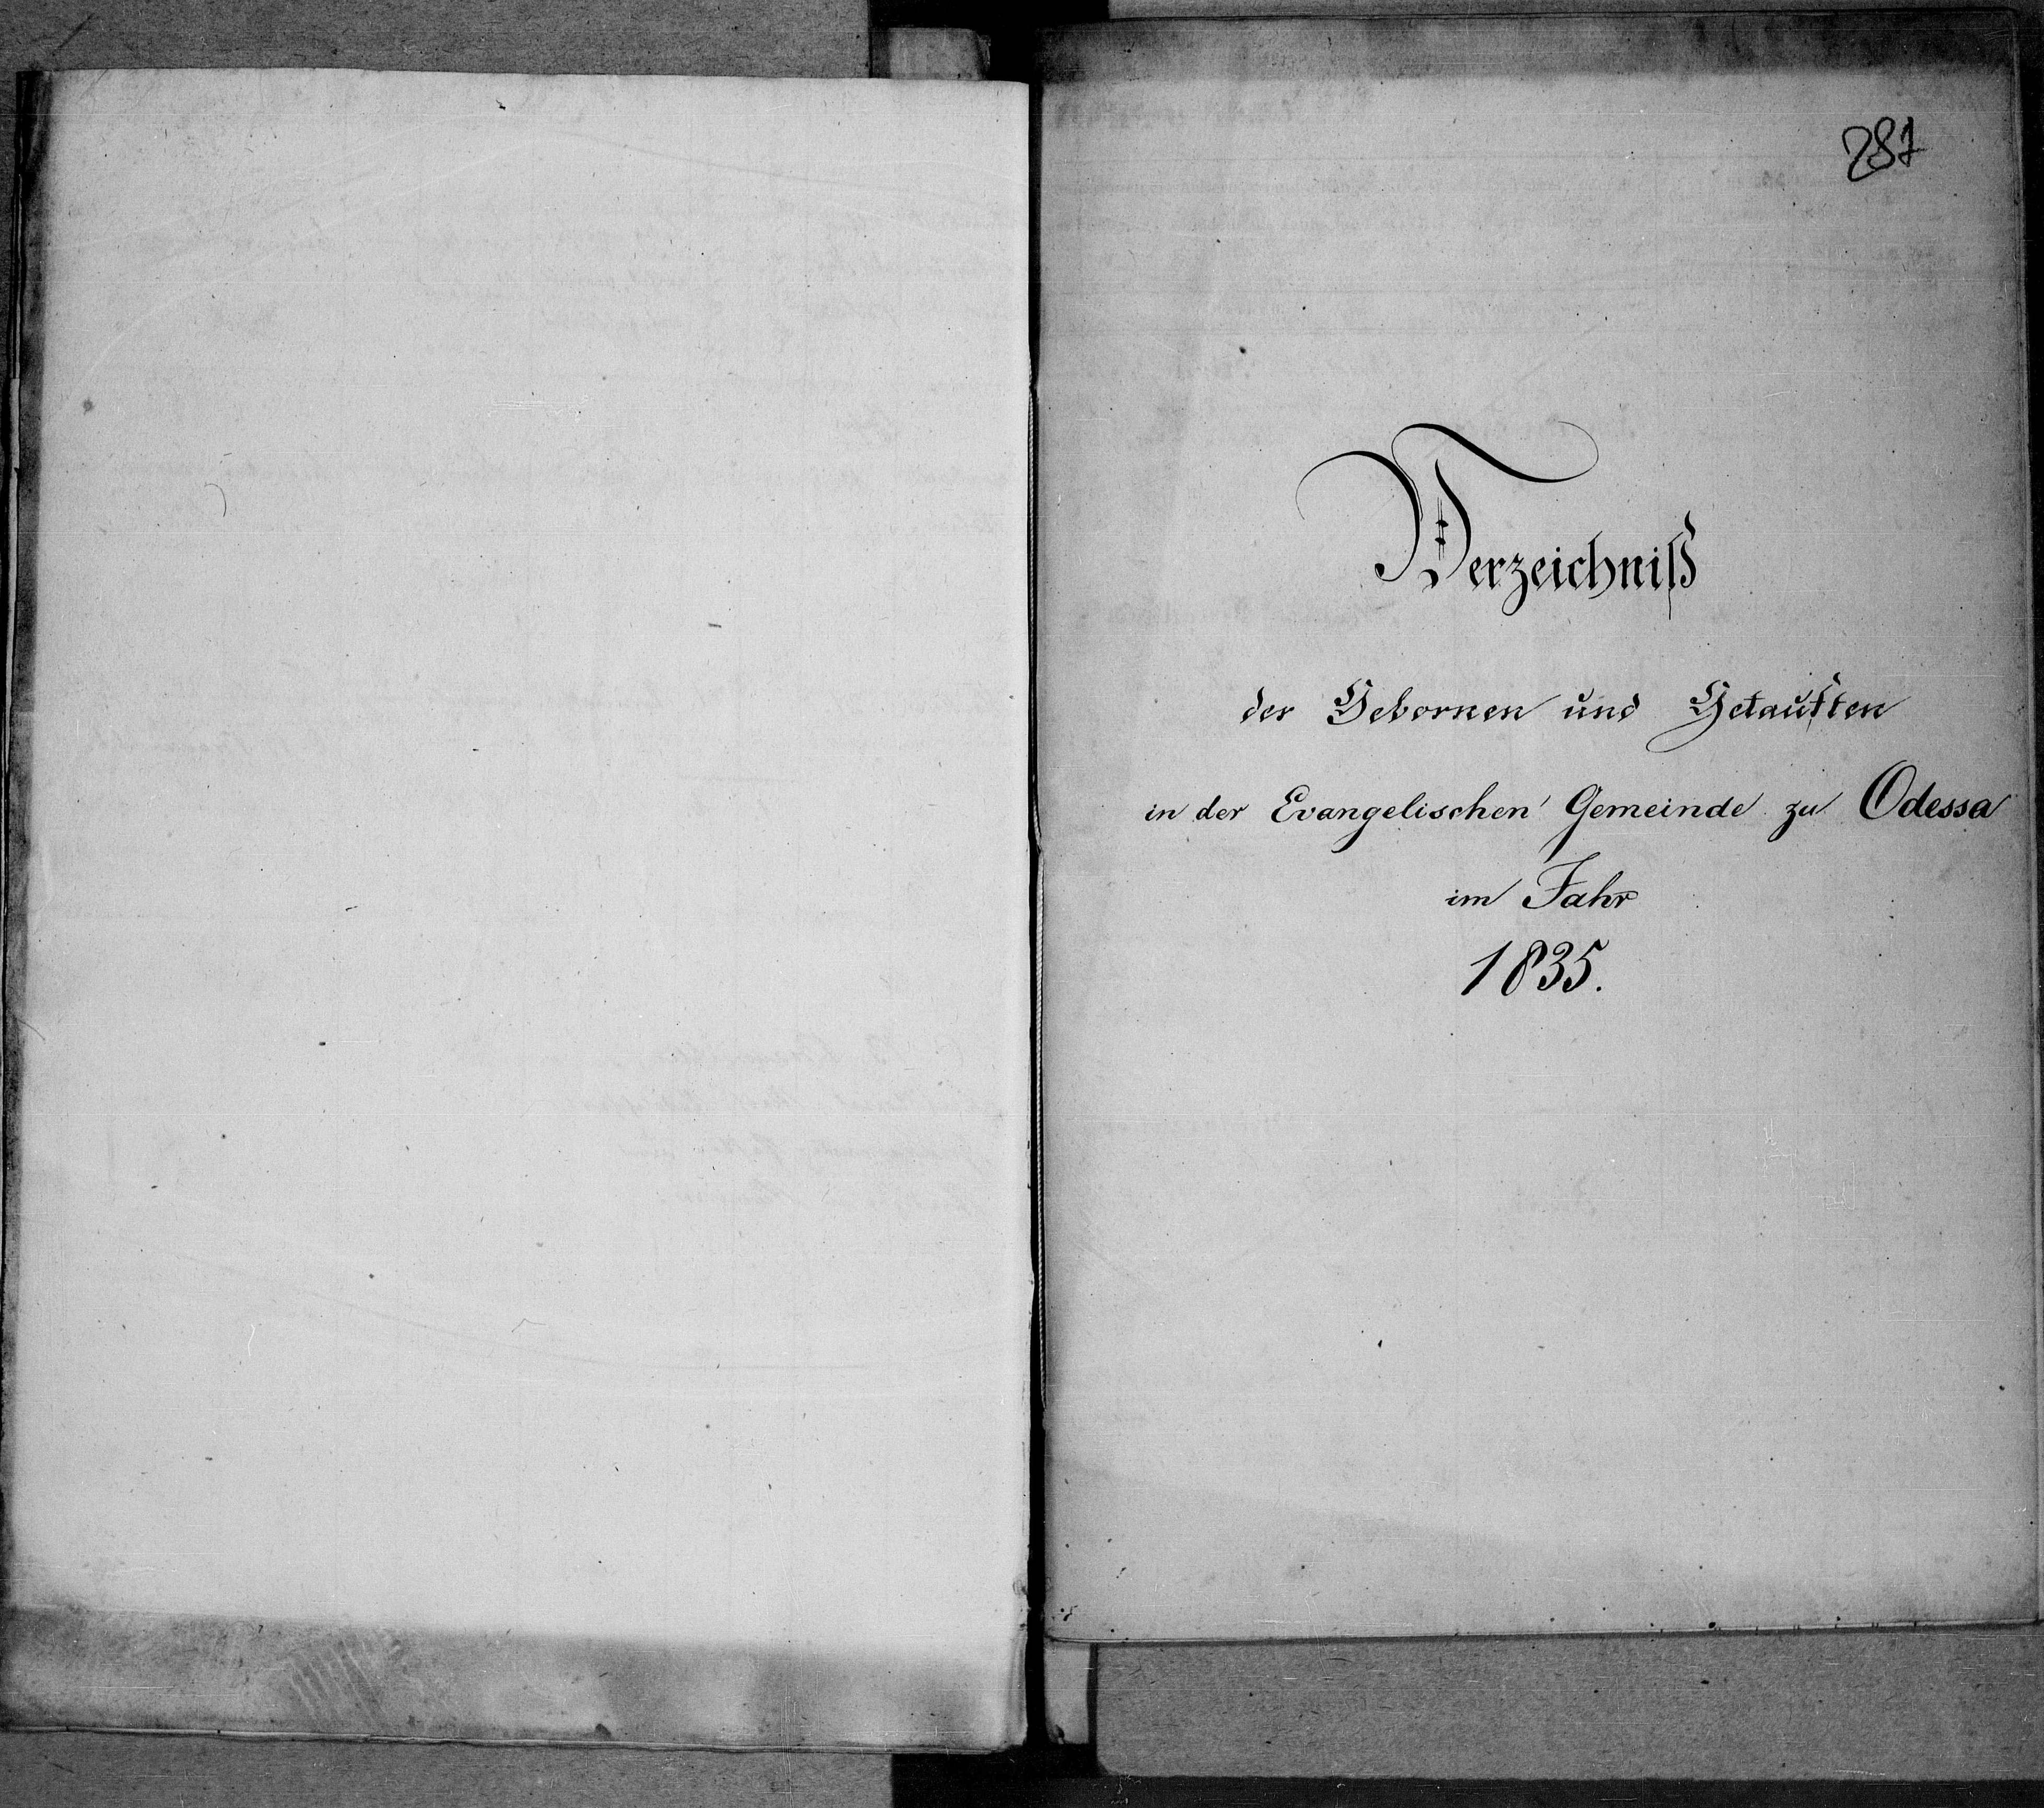 281
Verzeichniß
der Gebornen und Getauften
in der Evangelischen Gemeinde zu Odessa
im Jahr
1835.